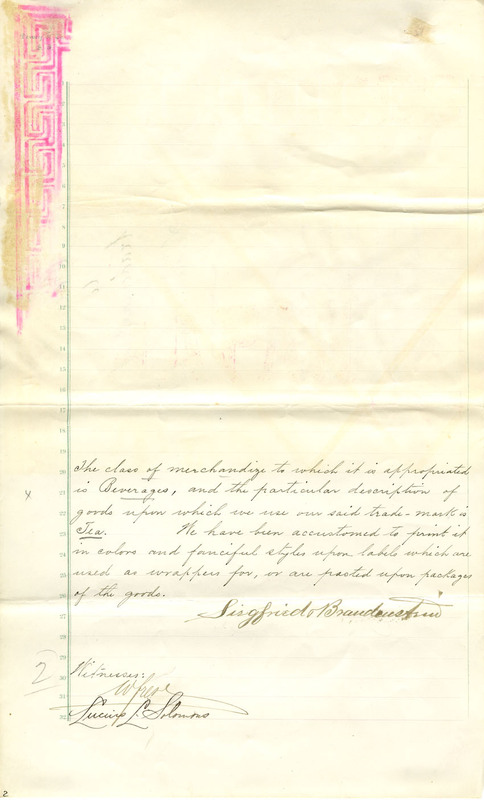 The class of merchandize to which it is appropriated
is Beverages, and the particular description of
goods upon which we use our said trade-mark is
Tea. We have been accustomed to print it
in colors and fanciful styles upon labels which are
used as wrappers for, or are pasted upon packages
of the goods.
Siegfried Brandenstein
Witnesses:
Lucius L. Solomons
2